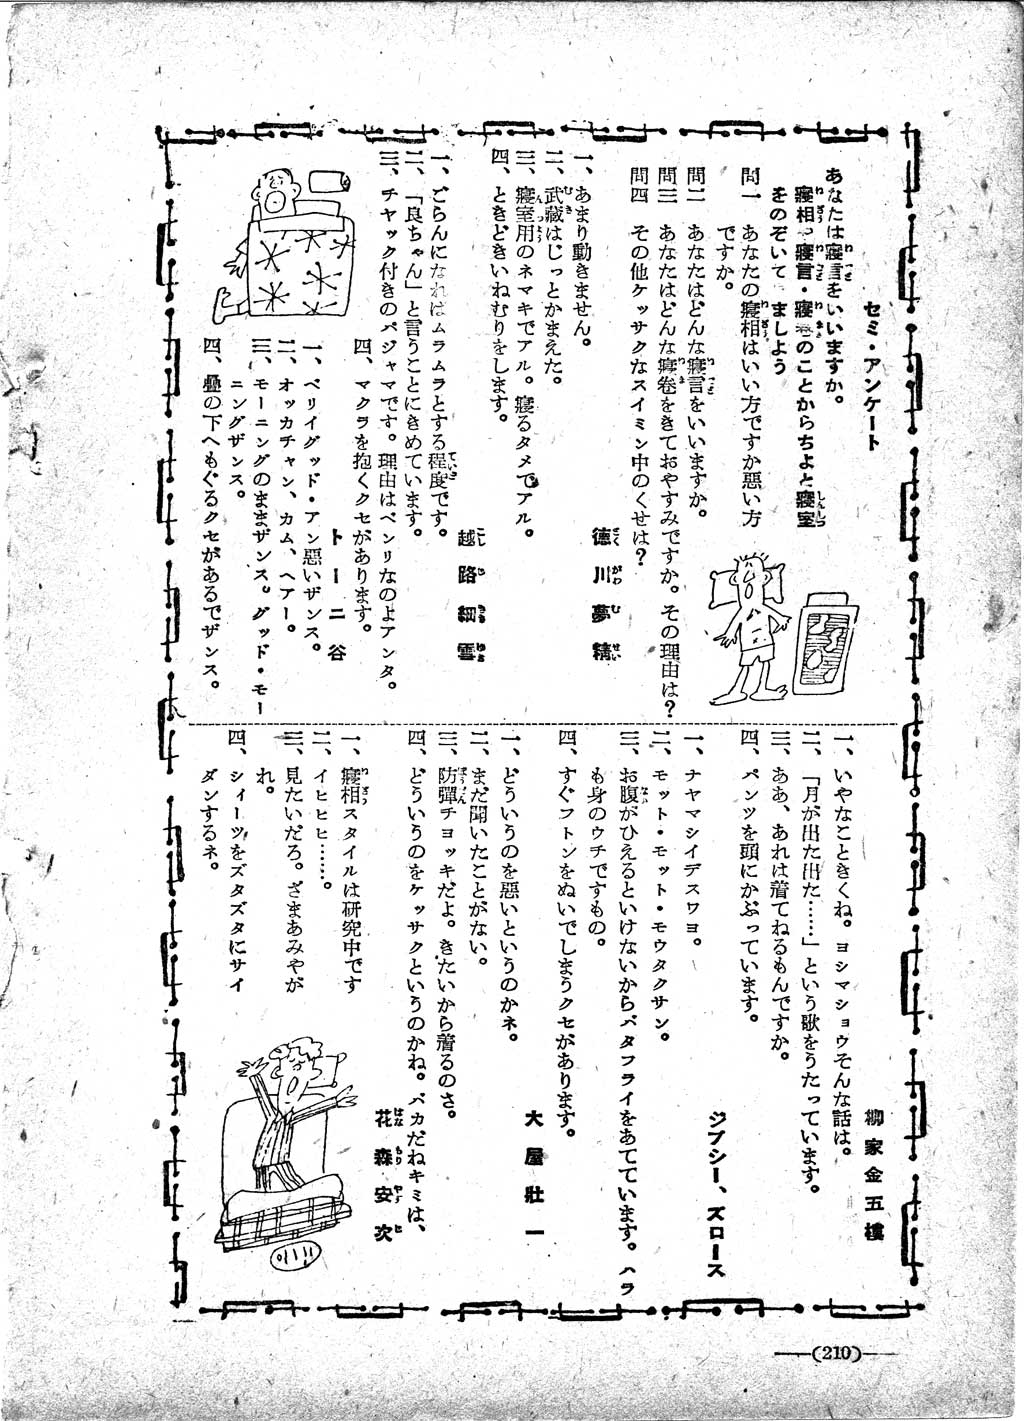 セミ・アンケート
あなたは寝言をいいますか。
寝相や寝言・寝巻のことからちよと寝室
をのぞいて ましよう
問一 あなたの寝相はいい方ですか悪い方
ですか。
問二 あなたはどんな寝言をいいますか。
問三 あなたはどんな寝巻をきておやすみですか。その理由は?
問四 その他ケッサクなスイミン中のくせは?
徳川夢精
一、あまり動きません。
二、武蔵はじっとかまえた。
三、寝室用のネマキでアル。寝るタメでアル。
四、ときどきいねむりをします。
越路細雪
一、ごらんになればムラムラとする程度です。
二、「良ちゃん」と言うことにきめています。
三、チャック付きのパジャマです。理由はベンリなのよアンタ。
四、マクラを抱くクセがあります。
トーニ谷
一、ベリイグッド・アン悪いザンス。
二、オッカチャン、カム、ヘアー。
三、モーニングのままザンス。グッド・モー
ニングザンス。
四、疊の下へもぐるクセがあるでザンス。
柳家金五樓
一、いやなこときくね。ヨシマショウそんな話は。
二、「月が出た出た……」という歌をうたっています。
三、ああ、あれは着てねるもんですか。
四、パンツを頭にかぶっています。
ジプシー、ズロース
一、ナヤマシイデスワヨ。
二、モット・モット・モウタクサン。
三、お腹がひえるといけないからバタフライをあてています。ハラ
も身のウチですもの。
四、すぐフトンをぬいでしまうクセがあります。
大屋壯一
一、どういうのを悪いというのかネ。
二、まだ聞いたことがない。
三、防彈チョッキだよ。きたいから着るのさ。
四、どういうのをケッサクというのかね。バカだねキミは、
花森安次
一、寝相スタイルは研究中です
二、イヒヒヒ……。
三、見たいだろ。ざまあみやが
れ。
四、シィーツをズタズタにサイ
ダンするネ。
(210)